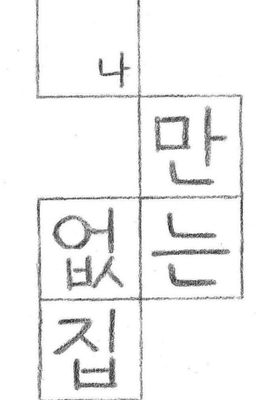 나
만
없는
집